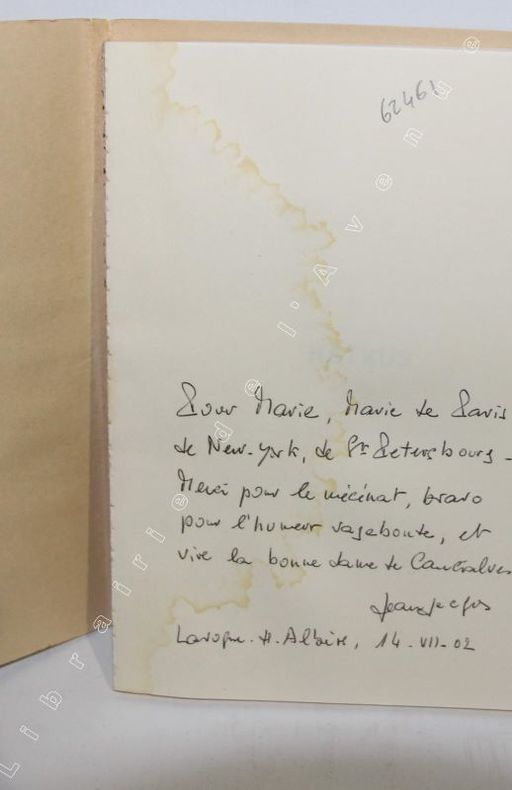 62461
Pour Marie, Marie de Paris
de New-York, de St Petersbourg -
Merci pour le mécénat, bravo
pour l'humeur vagabonde, et
vive la bonne dame de Cantalves
Jean-Jacques
14-VII-02
Librairie de l'Avenue